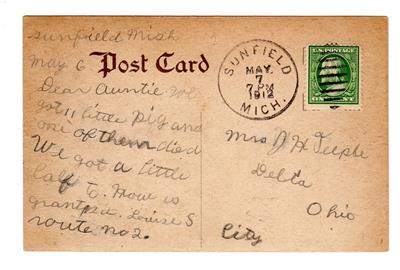 Sunfield Mich
May 6
Post Card
Dear Auntie We
got 11 little pig and
one of them died
We got a little
calf to. How is
grantpa. Louise S
route no 2.
SUNFIELD
MAY
7
7 PM
1912
MICH.
U.S. POSTAGE
ONE CENT
Mrs J H
Delta
Ohio
City